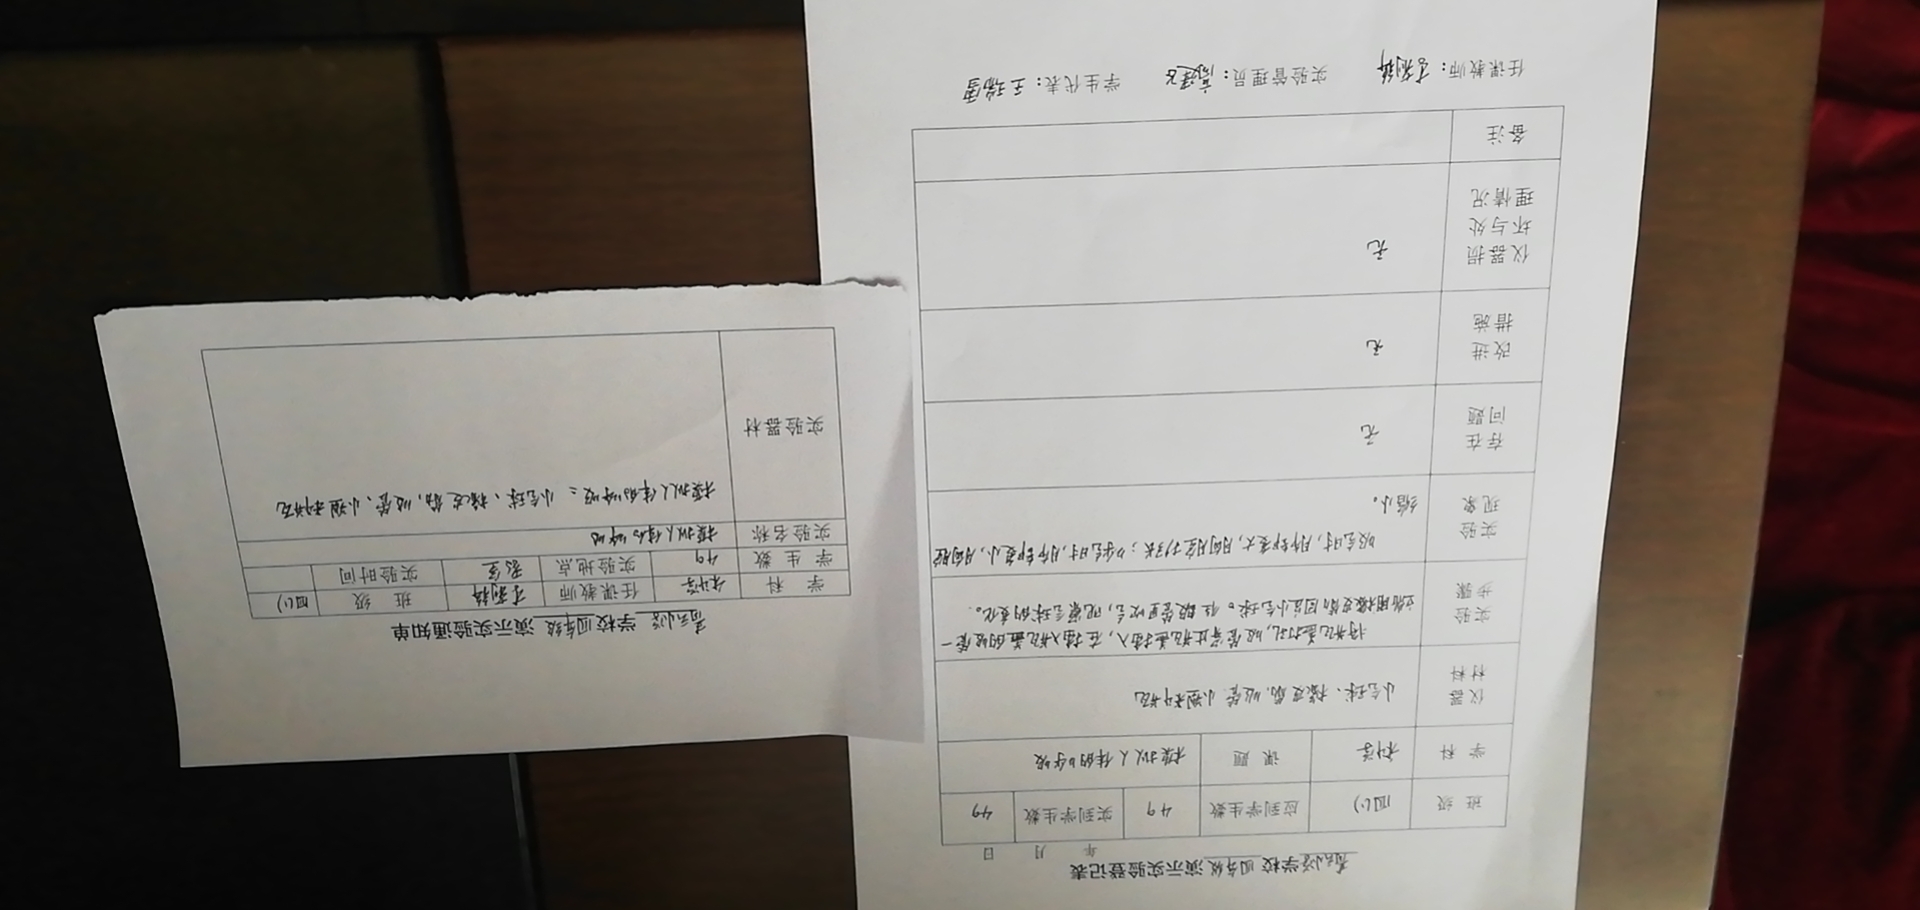 学校 四年级 演示实验登记表
年 月 日
班 级 四(1) 应到学生数 49 实到学生数 49
学 科 科学 课 题 模拟人体的呼吸
仪器材料 小气球、橡皮筋、吸管、小塑料瓶
实验步骤 将瓶盖打孔,吸管穿过瓶盖插入,在插入瓶盖的吸管一
端用橡皮筋固定小气球。往吸管里吹气,观察气球的变化。
实验现象 吸气时,肺部变大,胸腔扩张;呼气时,肺部变小,胸腔
缩小。
存在问题 无
改进措施 无
仪器损坏与处理情况 无
备注
任课教师: 实验管理员: 学生代表:王瑞雪
学校 四年级 演示实验通知单
学 科 科学 任课教师 班 级 四(1)
学 生 数 49 实验地点 教室 实验时间
实验名称 模拟人体的呼吸
实验器材 模拟人体的呼吸:小气球、橡皮筋、吸管、小塑料瓶